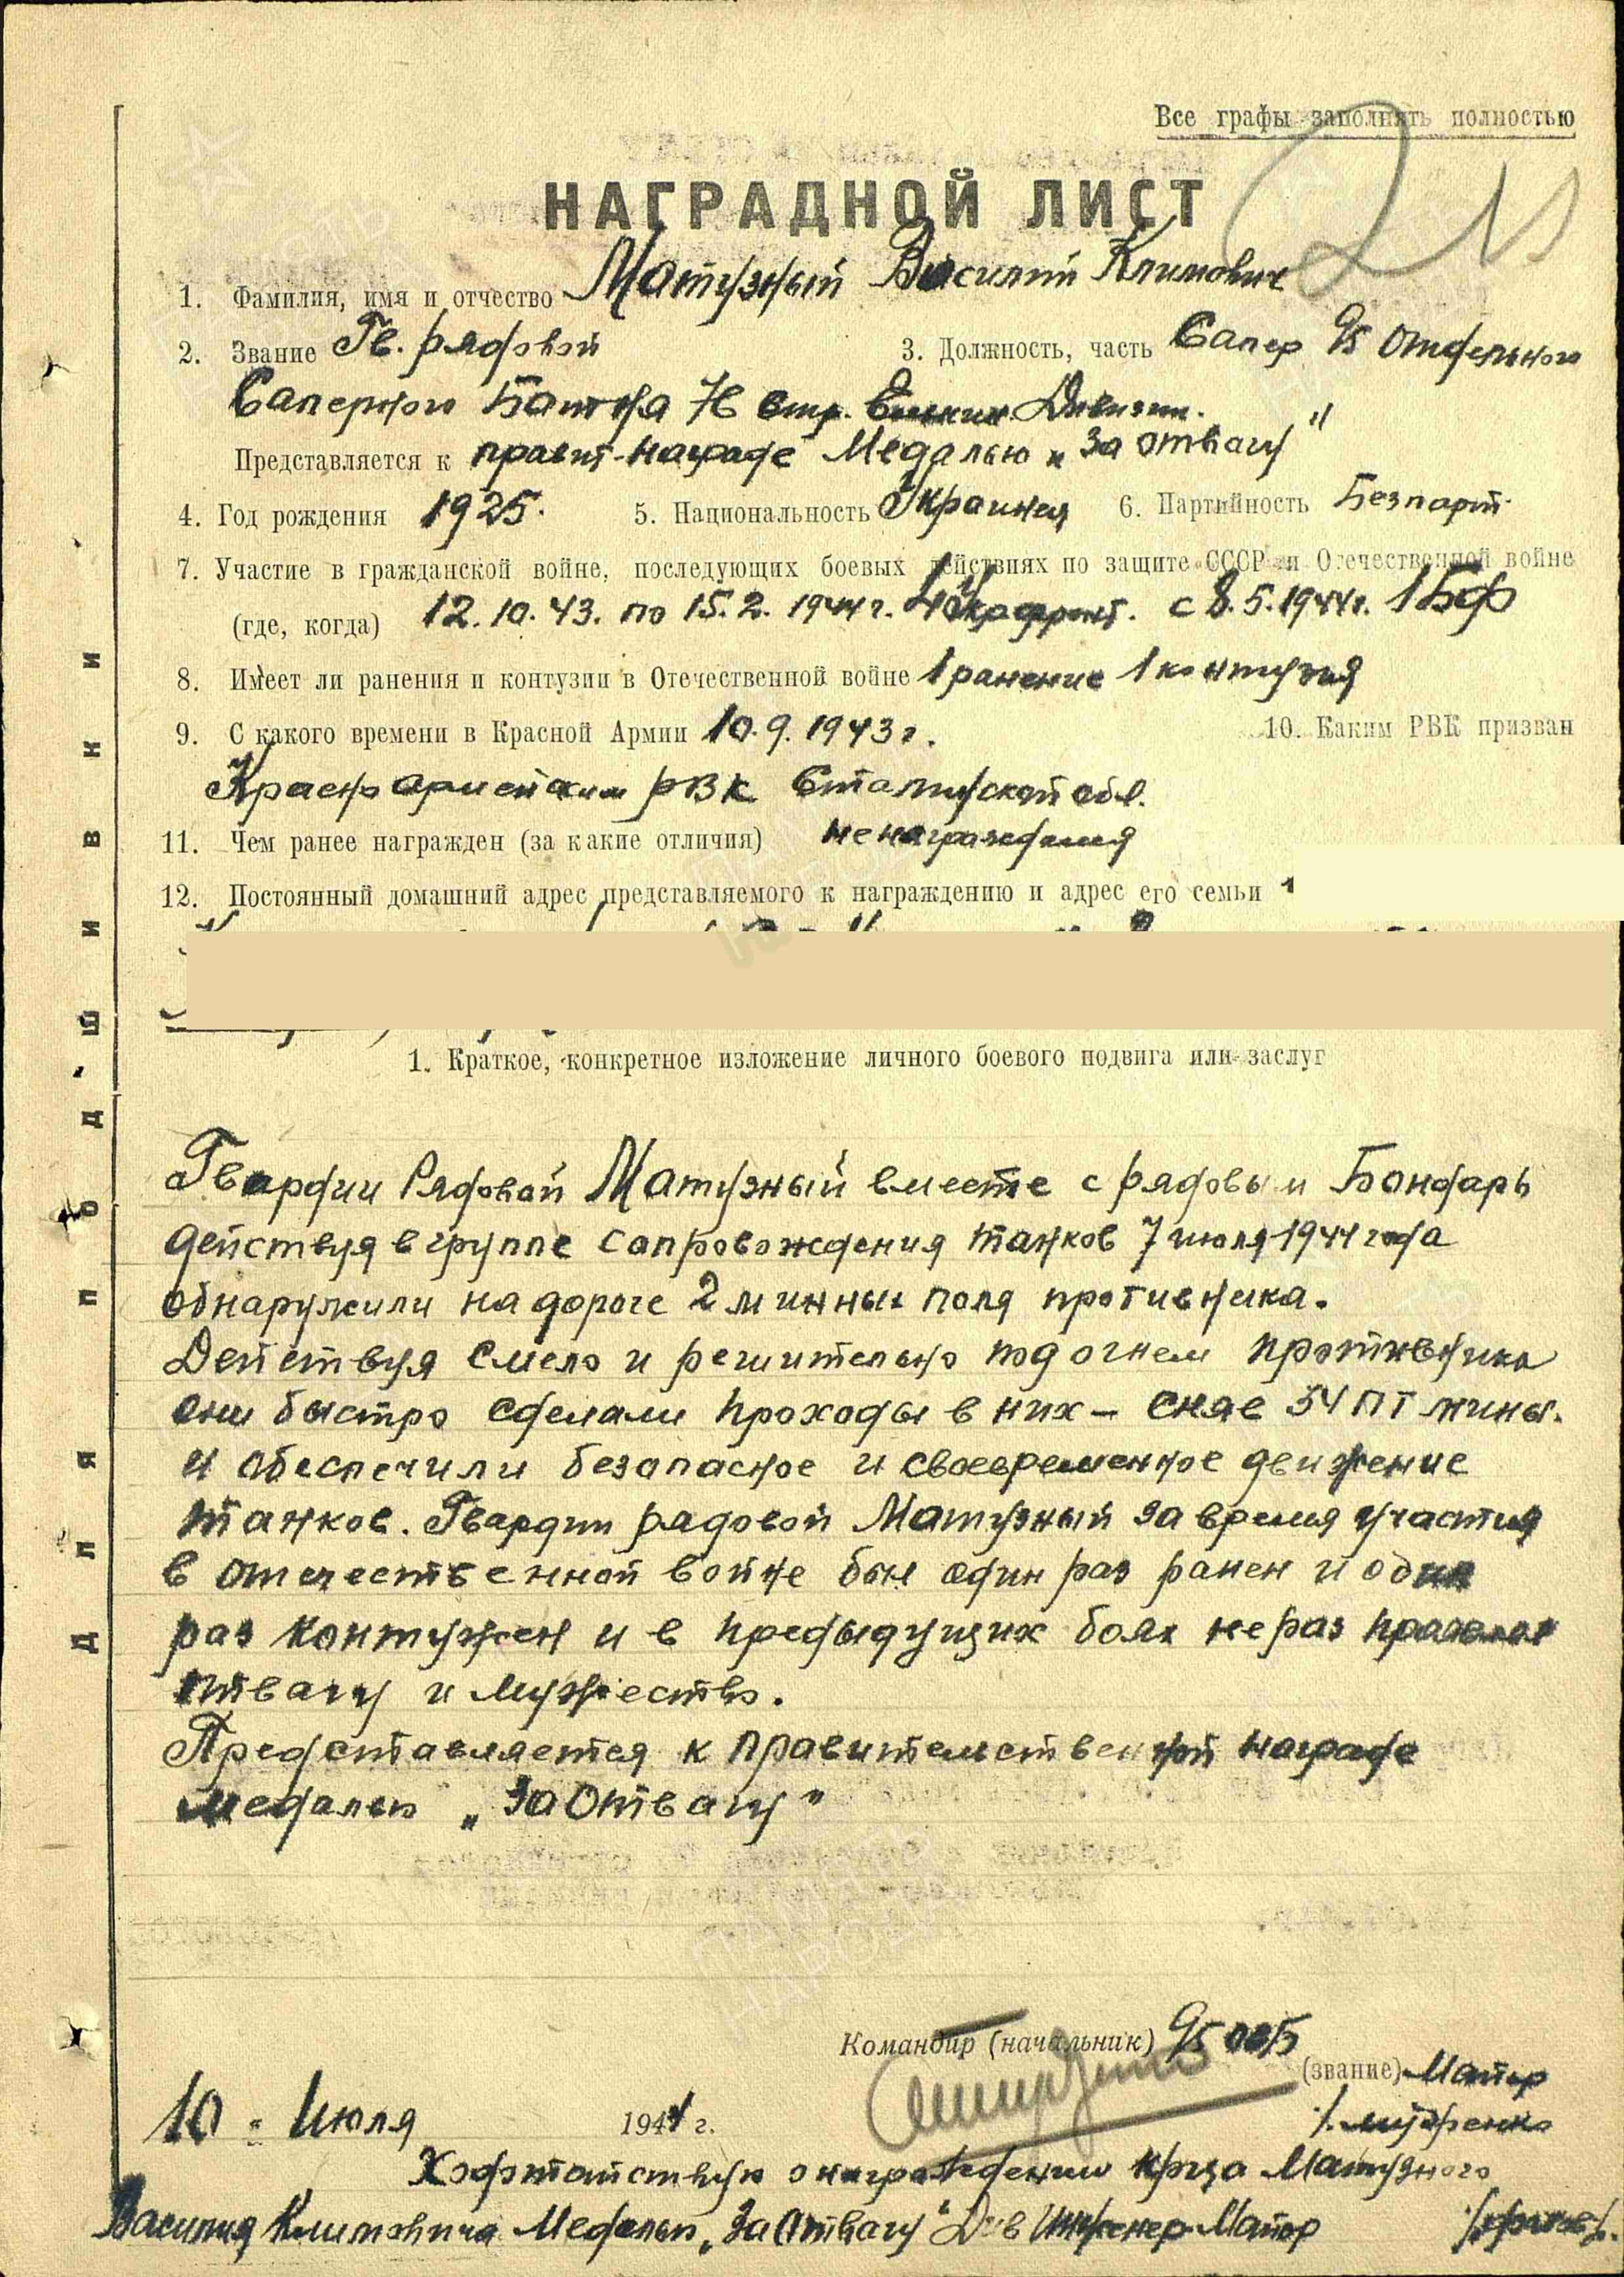 Все графы заполнять полностью
НАГРАДНОЙ ЛИСТ
1. Фамилия, имя и отчество Матузный Василий Климович
2. Звание Гв. рядовой 3. Должность, часть Сапер 95 отдельного
Саперного Бат-на 76 стр. Дивизии.
Представляется к правит. награде Медалью „За отвагу"
4. Год рождения 1925. 5. Национальность Украинец 6. Партийность Безпарт.
7. Участие в гражданской войне, последующих боевых действиях по защите СССР и Отечественной войне
(где, когда) 12.10.43. по 15.2.1944 г. 4 Укр фронт. с 8.5.1944г. 1БФ
8. Имеет ли ранения и контузии в Отечественной войне 1 ранение 1 контузия
9. С какого времени в Красной Армии 10.9.1943 г. 10. Каким РВК призван
Красноармейским РВК Сталинской обл.
11. Чем ранее награжден (за какие отличия)
12. Постоянный домашний адрес представляемого к награждению и адрес его семьи
1. Краткое, конкретное изложение личного боевого подвига или заслуг
Гвардии Рядовой Матузный вместе с рядовым Бондарь
действуя в группе сопровождения танков 7 июля 1944 года
обнаружили на дороге 2 минных поля противника.
Действуя смело и решительно под огнем противника
они быстро сделали проходы в них – сняв 54 ПТ мины.
и обеспечили безопасное и своевременное движение
танков. Гвардии рядовой Матузный за время участия
в отечественной войне был один раз ранен и один
раз контужен и в предыдущих боях не раз проявлял
отвагу и мужество.
Представляется к правительственной награде
медалью „За Отвагу"
Командир (начальник) 95 ОСБ
(звание) Майор
10 " Июля 1944 г.
Ходотайствую о награждении кр-ца Матузного
Василия Климовича Медалью „За Отвагу" Див Инженер Майор
Для подшивки